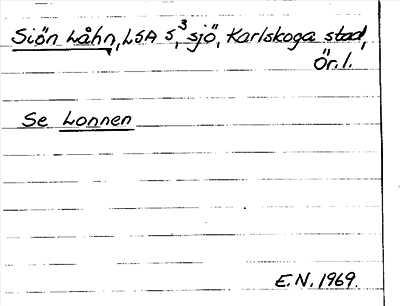 Siön Låhn, LSA 5,³ sjö, Karlskoga stad,
Ör. l.
Se Lonnen
E.N. 1969.